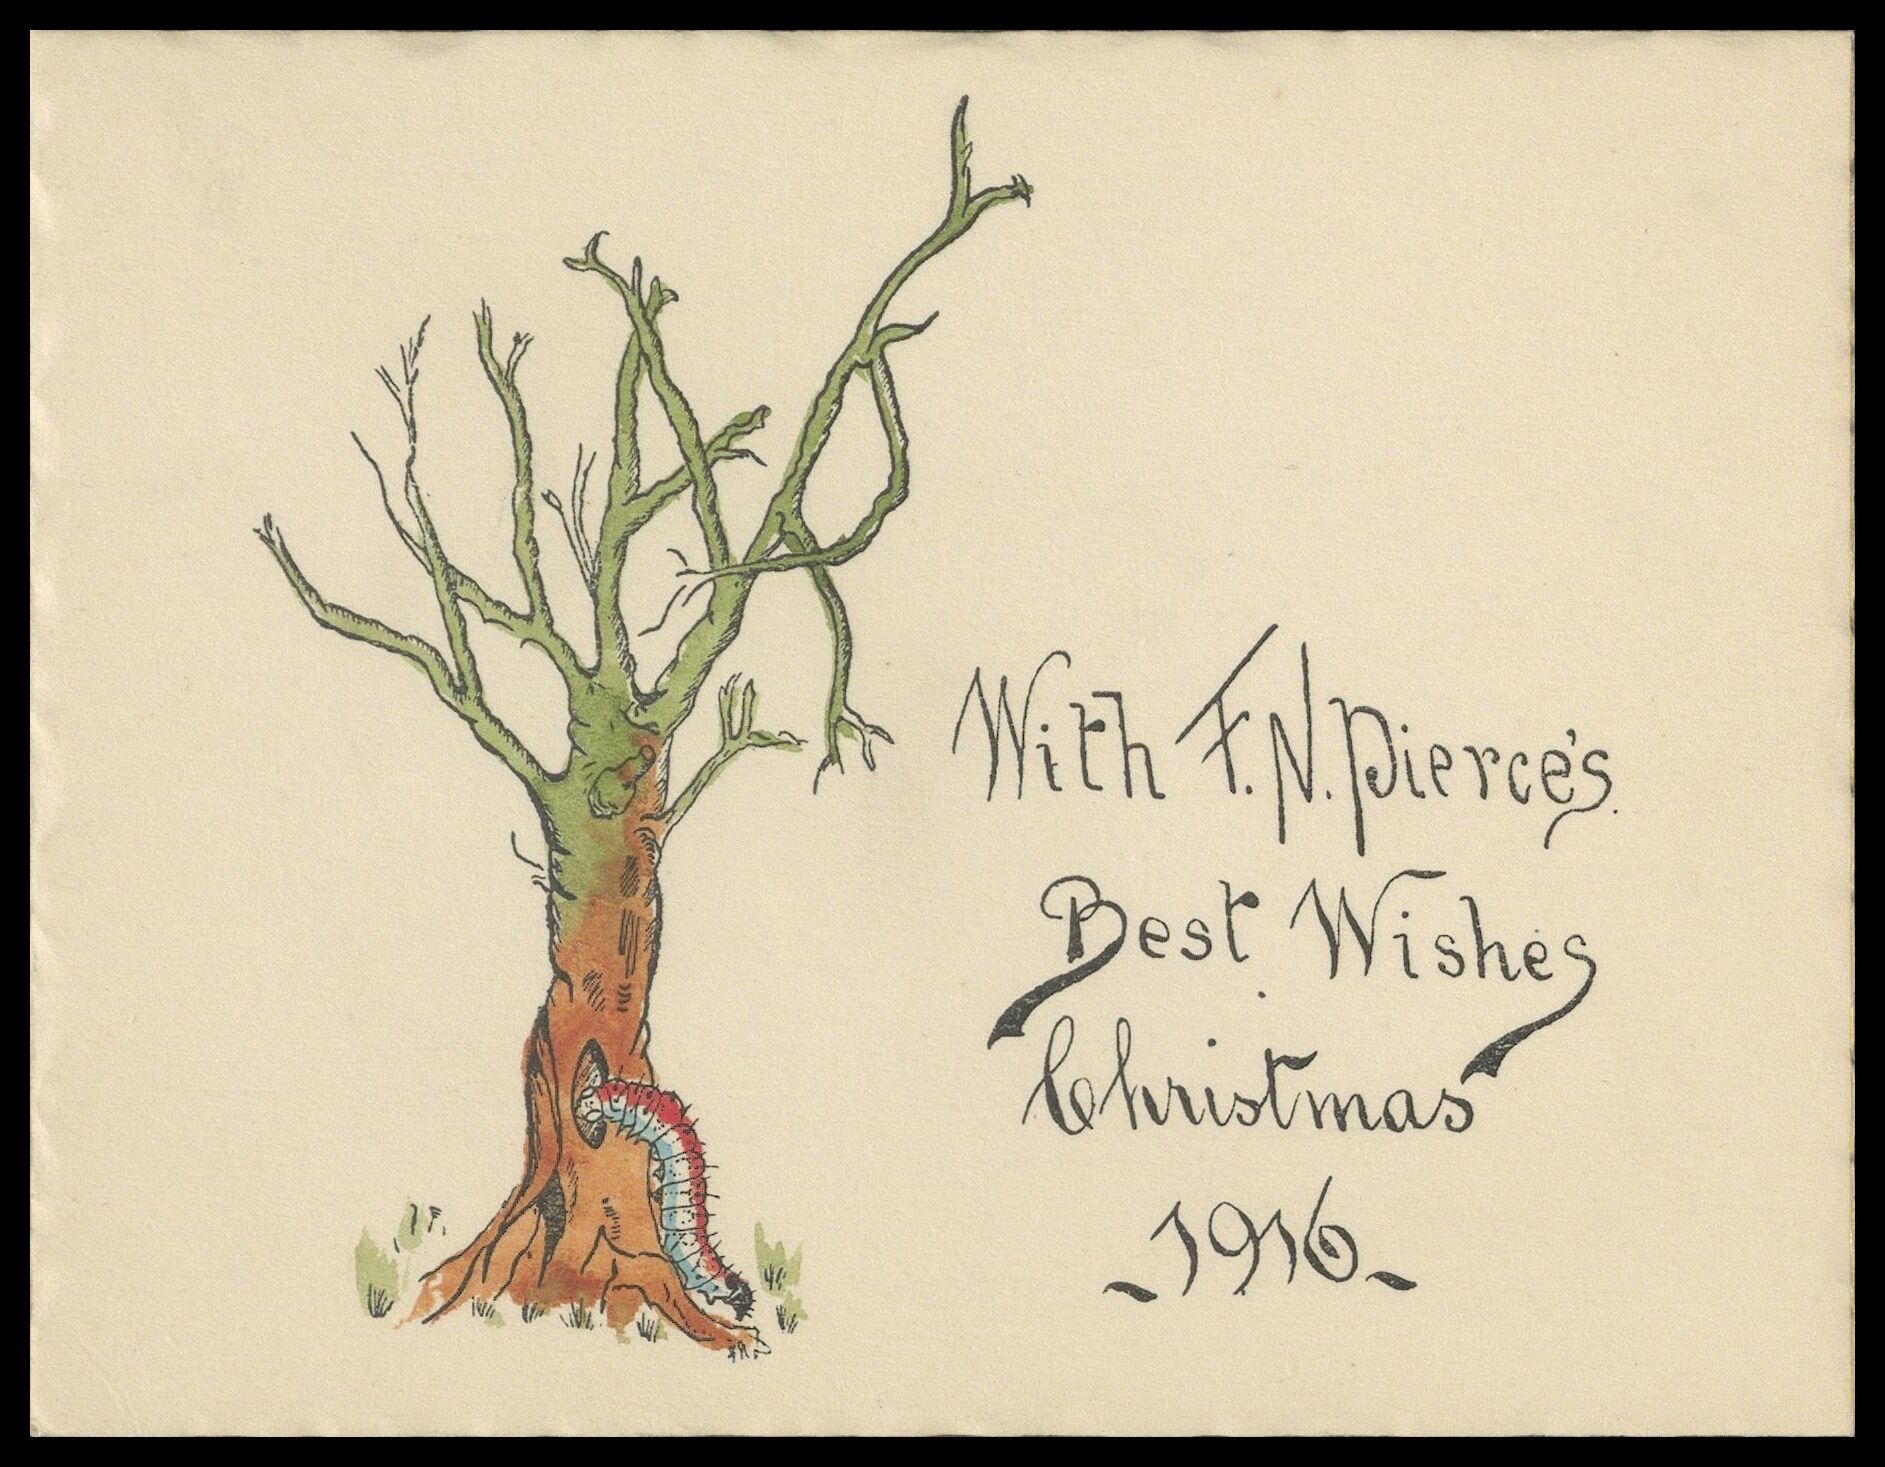 With F. N. Pierce's
Best Wishes
Christmas
-1916-